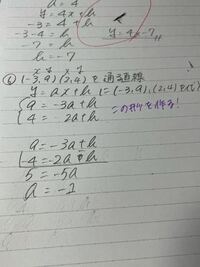 a = 4
y = 4x + b
-3 = 4 + b
-3-4 = b
-7 = b
b = -7
y = 4x-7
x y x y
⑥ (-3,9), (2,4) を通る直線
y = ax+b に (-3,9), (2,4)を代
9 = -3a+b
4 = -2a+b
この形を作る!
9 = -3a+b
4 = -2a+b
5 = -5a
a = -1